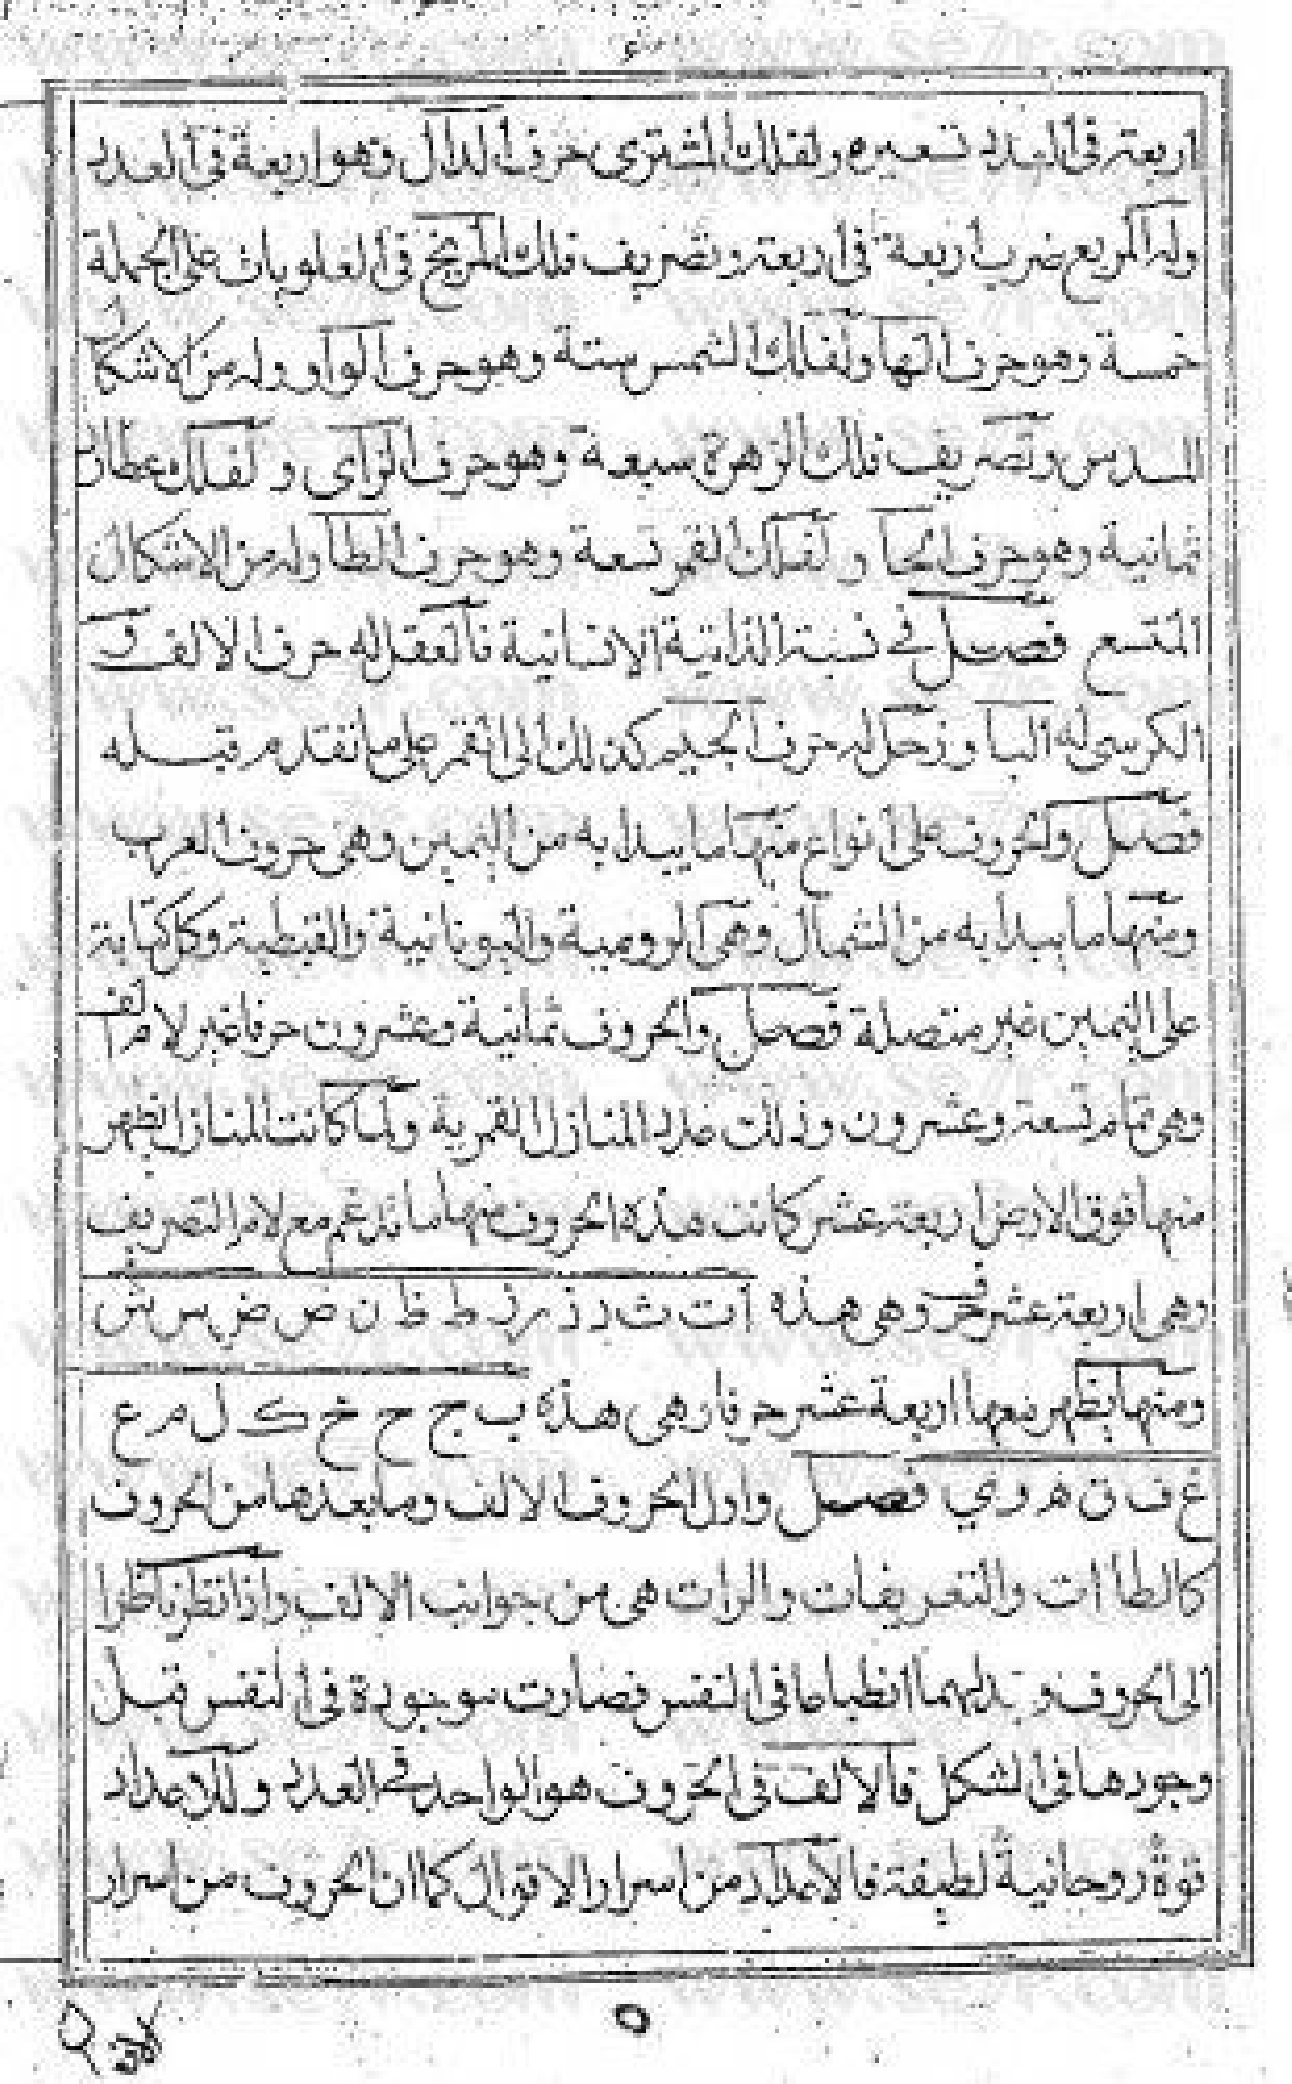 اربعة في العدد تسعيره ولفلك المشترى حرف الدال وهو اربعة في العدد
وله المربع ضرب اربعة في اربعة وتصريف فلك المريخ في العلويات على الجملة
خمسة وهو حرف الها ولفلك الشمس ستة وهو حرف الواو وله من الاشكال
المسدس وتصريف فلك الزهرة سبعة وهو حرف الزاى ولفلك عطارد
ثمانية وهو حرف الحا ولفلك القمر تسعة وهو حرف الطا وله من الاشكال
المتسع فصل في نسبة الذاتية الانسانية فالعقل له حرف الالف و
الكرسى له البا وزحل له حرف الجيم كذلك الى القمر على ما تقدم قبله
فصل والحروف على انواع منها ما يبدا به من اليمين وهى حروف العرب
ومنها ما يبدا به من الشمال وهى الرومية واليونانية والقبطية وكل كتابة
على اليمين غير متصلة فصل والحروف ثمانية وعشرون حرفا غير لام الف
وهى تمام تسعة وعشرون وذلك عدد المنازل القمرية ولما كانت المنازل يظهر
منها فوق الارض اربعة عشر كانت هذه الحروف منها ما تدغم مع لام التصريف
وهى اربعة عشر حرف وهى هذه ا ت ث د ذ ر ز ط ظ ن ص ض س ش
ومنها يظهر معها اربعة عشر حرفا وهى هذه ب ج ح خ ك ل م ع
غ ف ق ه و ي فصل واول الحروف الالف وما بعدها من الحروف
كالطاات والتعريفات والرات هى من جوانب الالف واذا نظر ناظرا
الى الحروف وجد لهما انطباعا في النفس فصارت موجودة في النفس قبل
وجودها في الشكل فالالف في الحروف هو الواحد في العدد وللاعداد
قوة روحانية لطيفة فالاعداد من اسرار الاقوال كما ان الحروف من اسرار
٥